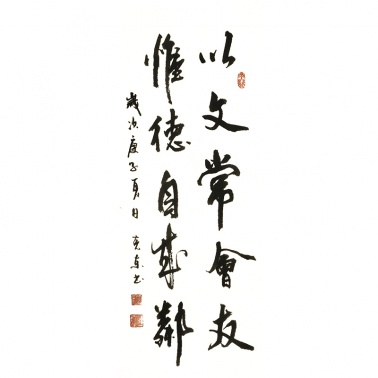 以文常會友
惟德自成鄰
歲次庚子夏日 克東书